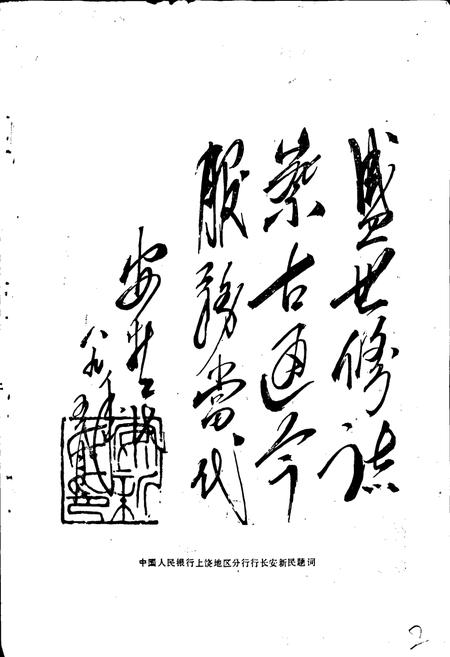 盛世修誌
古通今
服務當代
安新民
八九年
安新民印
中国人民银行上饶地区分行行长安新民题词
2